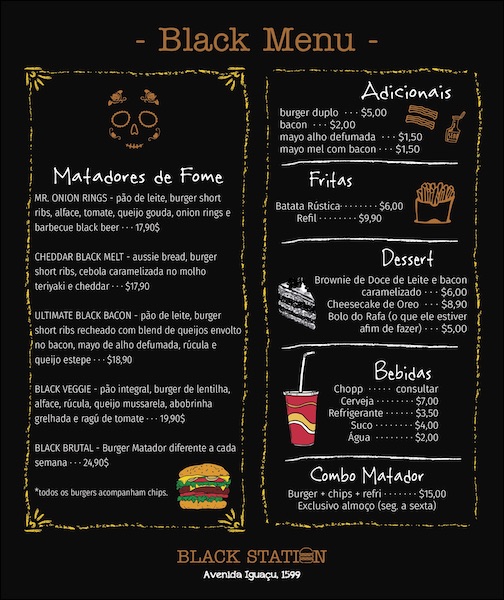 - Black Menu -
Matadores de Fome
MR. ONION RINGS - pão de leite, burger short
ribs, alface, tomate, queijo gouda, onion rings e
barbecue black beer · · · 17,90$
CHEDDAR BLACK MELT - aussie bread, burger
short ribs, cebola caramelizada no molho
teriyaki e cheddar · · · $17,90
ULTIMATE BLACK BACON - pão de leite, burger
short ribs recheado com blend de queijos envolto
no bacon, mayo de alho defumado, rúcula e
queijo estepe · · · $18,90
BLACK VEGGIE - pão integral, burger de lentilha,
alface, rúcula, queijo mussarela, abobrinha
grelhada e ragú de tomate · · · 19,90$
BLACK BRUTAL - Burger Matador diferente a cada
semana · · · 24,90$
*todos os burgers acompanham chips.
Adicionais
burger duplo · · · $5,00
bacon · · · $2,00
mayo alho defumada · · · $1,50
mayo mel com bacon · · · $1,50
Fritas
Batata Rústica · · · · · · · $6,00
Refil · · · · · · · $9,90
Dessert
Brownie de Doce de Leite e bacon
caramelizado · · · $6,00
Cheesecake de Oreo · · · $8,90
Bolo do Rafa (o que ele estiver
afim de fazer) · · · $5,00
Bebidas
Chopp · · · · · consultar
Cerveja · · · · · · · $7,00
Refrigerante · · · · · $3,50
Suco · · · · · · · $4,00
Água · · · · · · · $2,00
Combo Matador
Burger + chips + refri · · · · · $15,00
Exclusivo almoço (seg. a sexta)
BLACK STATION
Avenida Iguaçu, 1599